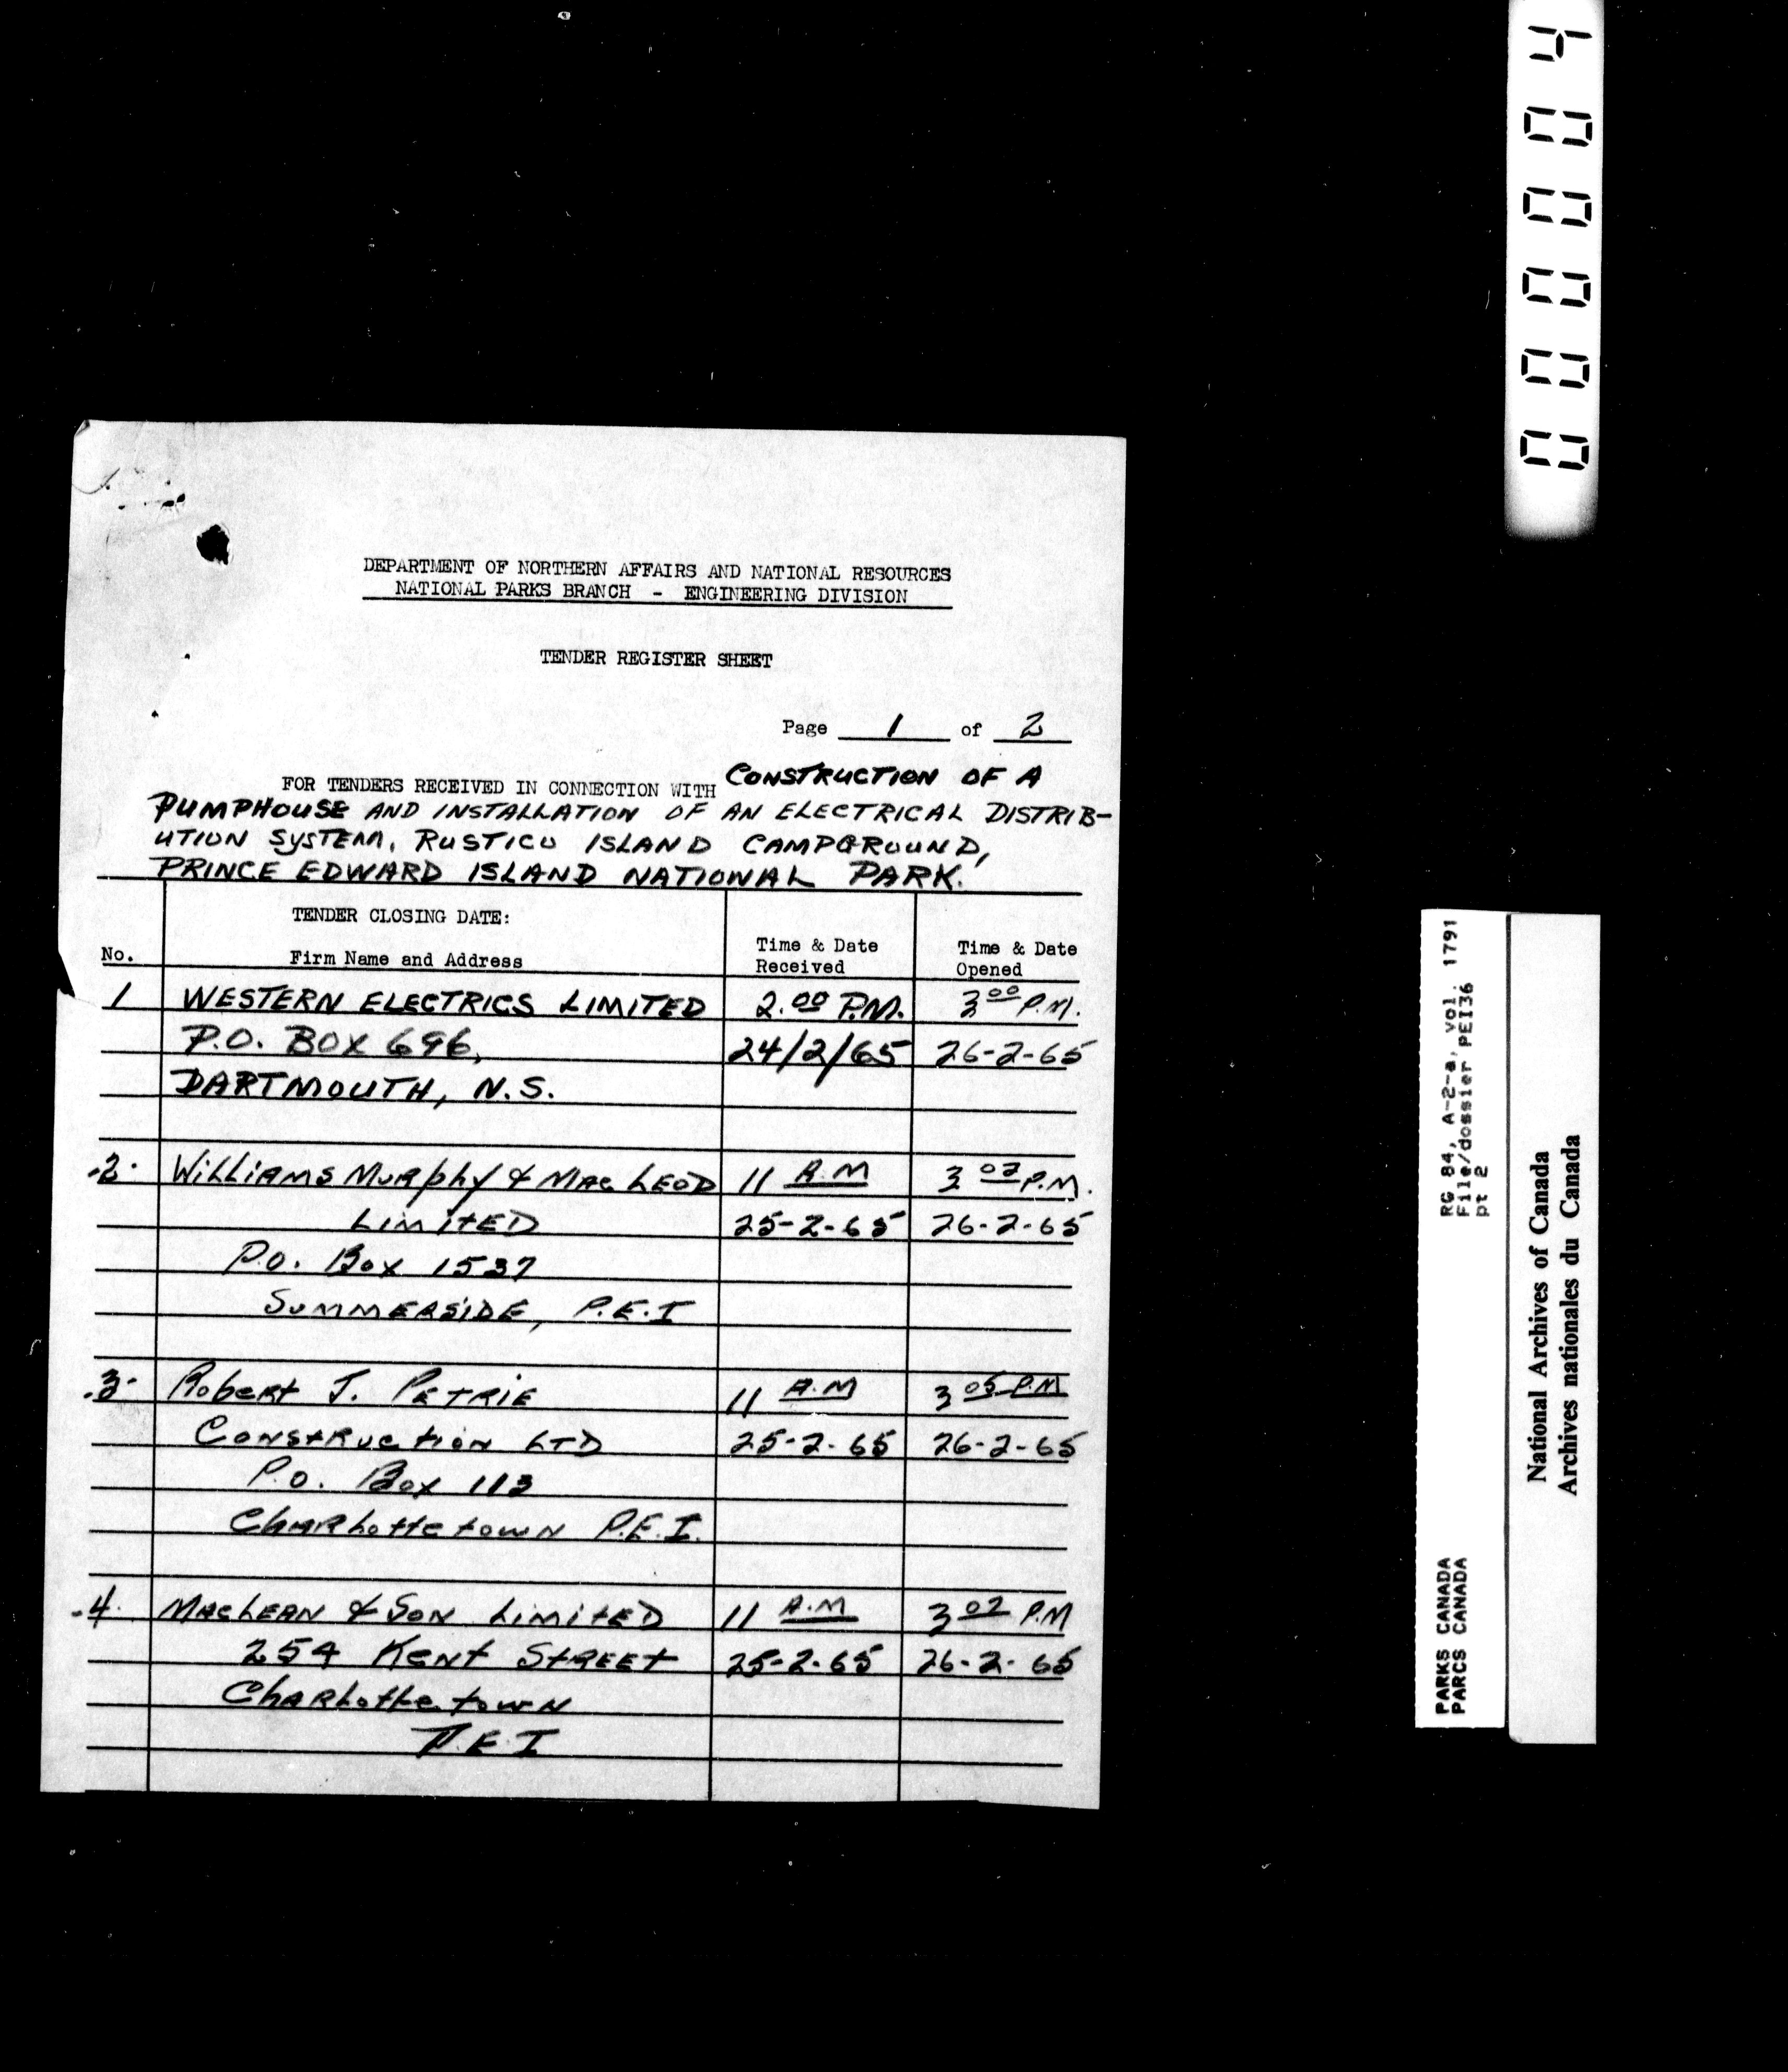 DEPARTMENT OF NORTHERN AFFAIRS AND NATIONAL RESOURCES
NATIONAL PARKS BRANCH - ENGINEERING DIVISION
TENDER REGISTER SHEET
Page 1 of 2
FOR TENDERS RECEIVED IN CONNECTION WITH CONSTRUCTION OF A
PUMPHOUSE AND INSTALLATION OF AN ELECTRICAL DISTRIB-
UTION SYSTEM, RUSTICO ISLAND CAMPGROUND,
PRINCE EDWARD ISLAND NATIONAL PARK.
TENDER CLOSING DATE:
No. Firm Name and Address Time & Date Received Time & Date Opened
1 WESTERN ELECTRICS LIMITED 2.00 P.M. 3 00 P.M.
P.O. BOX 696, 24/2/65 26-2-65
DARTMOUTH, N.S.
.2. Williams Murphy & MacLeod 11 A.M 3 02 P.M.
Limited 25-2-65 26-2-65
P.O. Box 1537
Summerside, P.E.I
.3. Robert J. Petrie 11 A.M 3 05 P.M
Construction LTD 25-2-65 26-2-65
P.O. Box 113
Charlottetown P.E.I.
.4. MacLean & Son Limited 11 A.M 3 07 P.M
254 Kent Street 25-2-65 26-2-65
Charlottetown
P.E.I
000004
RG 84, A-2-a, vol. 1791
File/dossier PEI36
pt 2
PARKS CANADA
PARCS CANADA
National Archives of Canada
Archives nationales du Canada